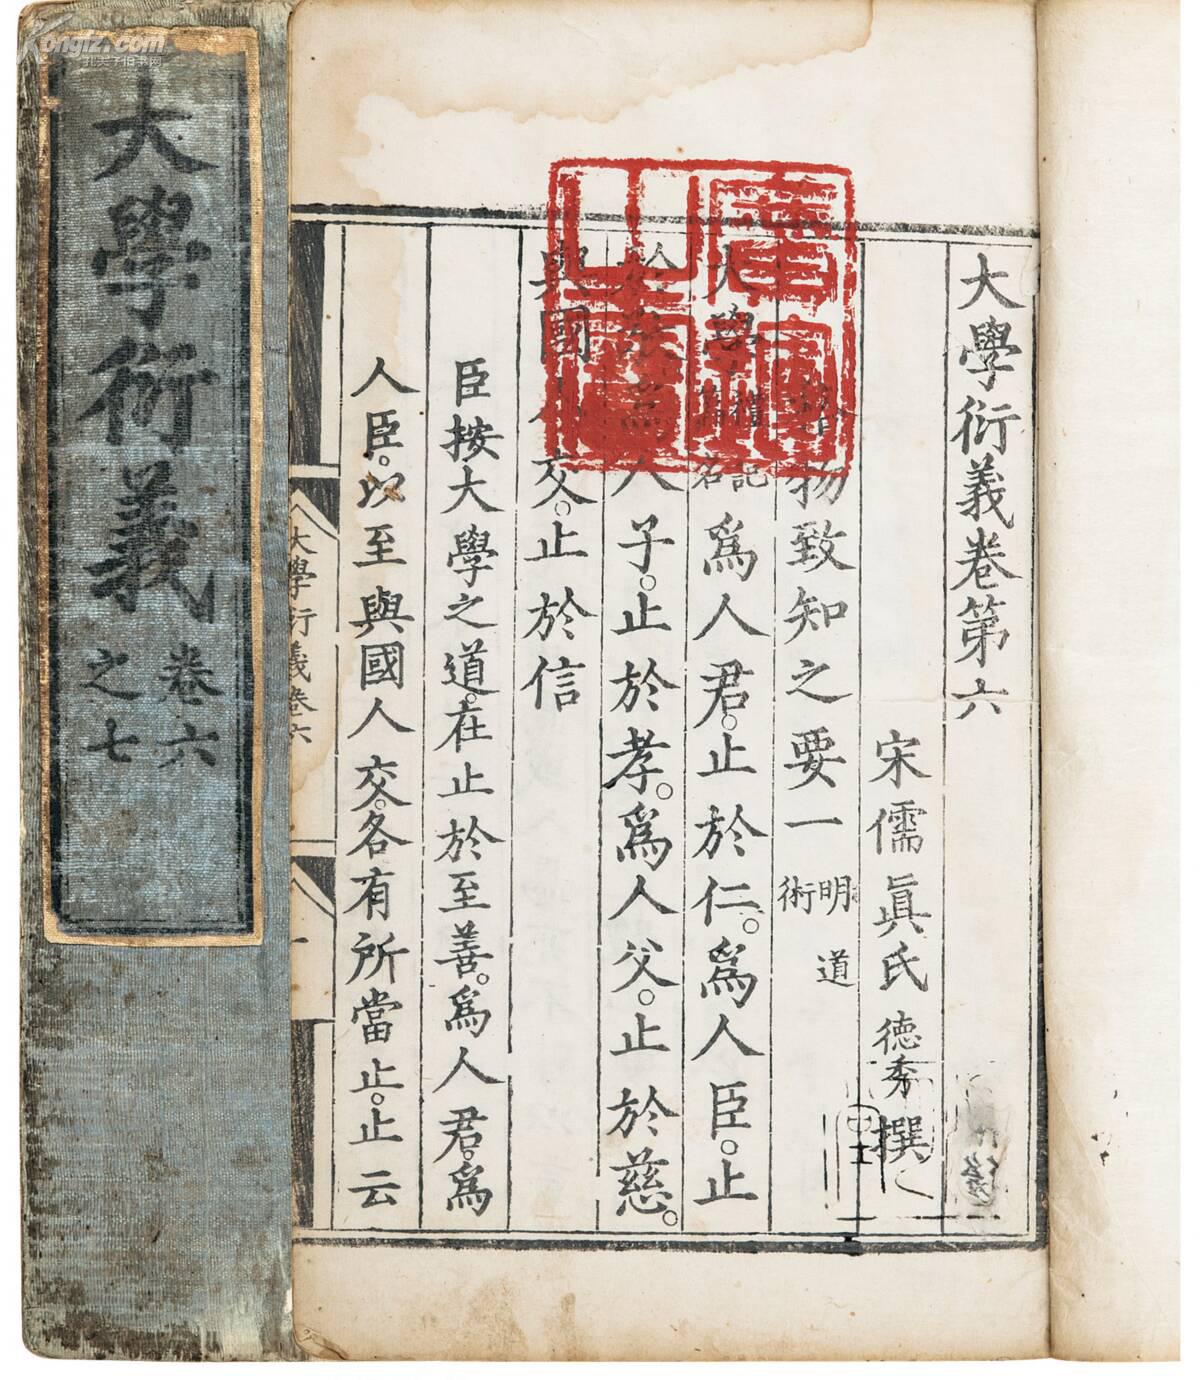 大學衍義卷第六
宋儒眞氏德秀撰
格物致知之要一 明道術
大學 禮記篇名 爲人君。止於仁。爲人臣。止
於敬。爲人子。止於孝。爲人父。止於慈。
與國人交。止於信
臣按大學之道。在止於至善。爲人君。爲
人臣。以至與國人交。各有所當止。止云
大學衍義卷六
一
大學衍義
卷六
之七
廣運之寶
Kongfz.com
孔夫子旧书网